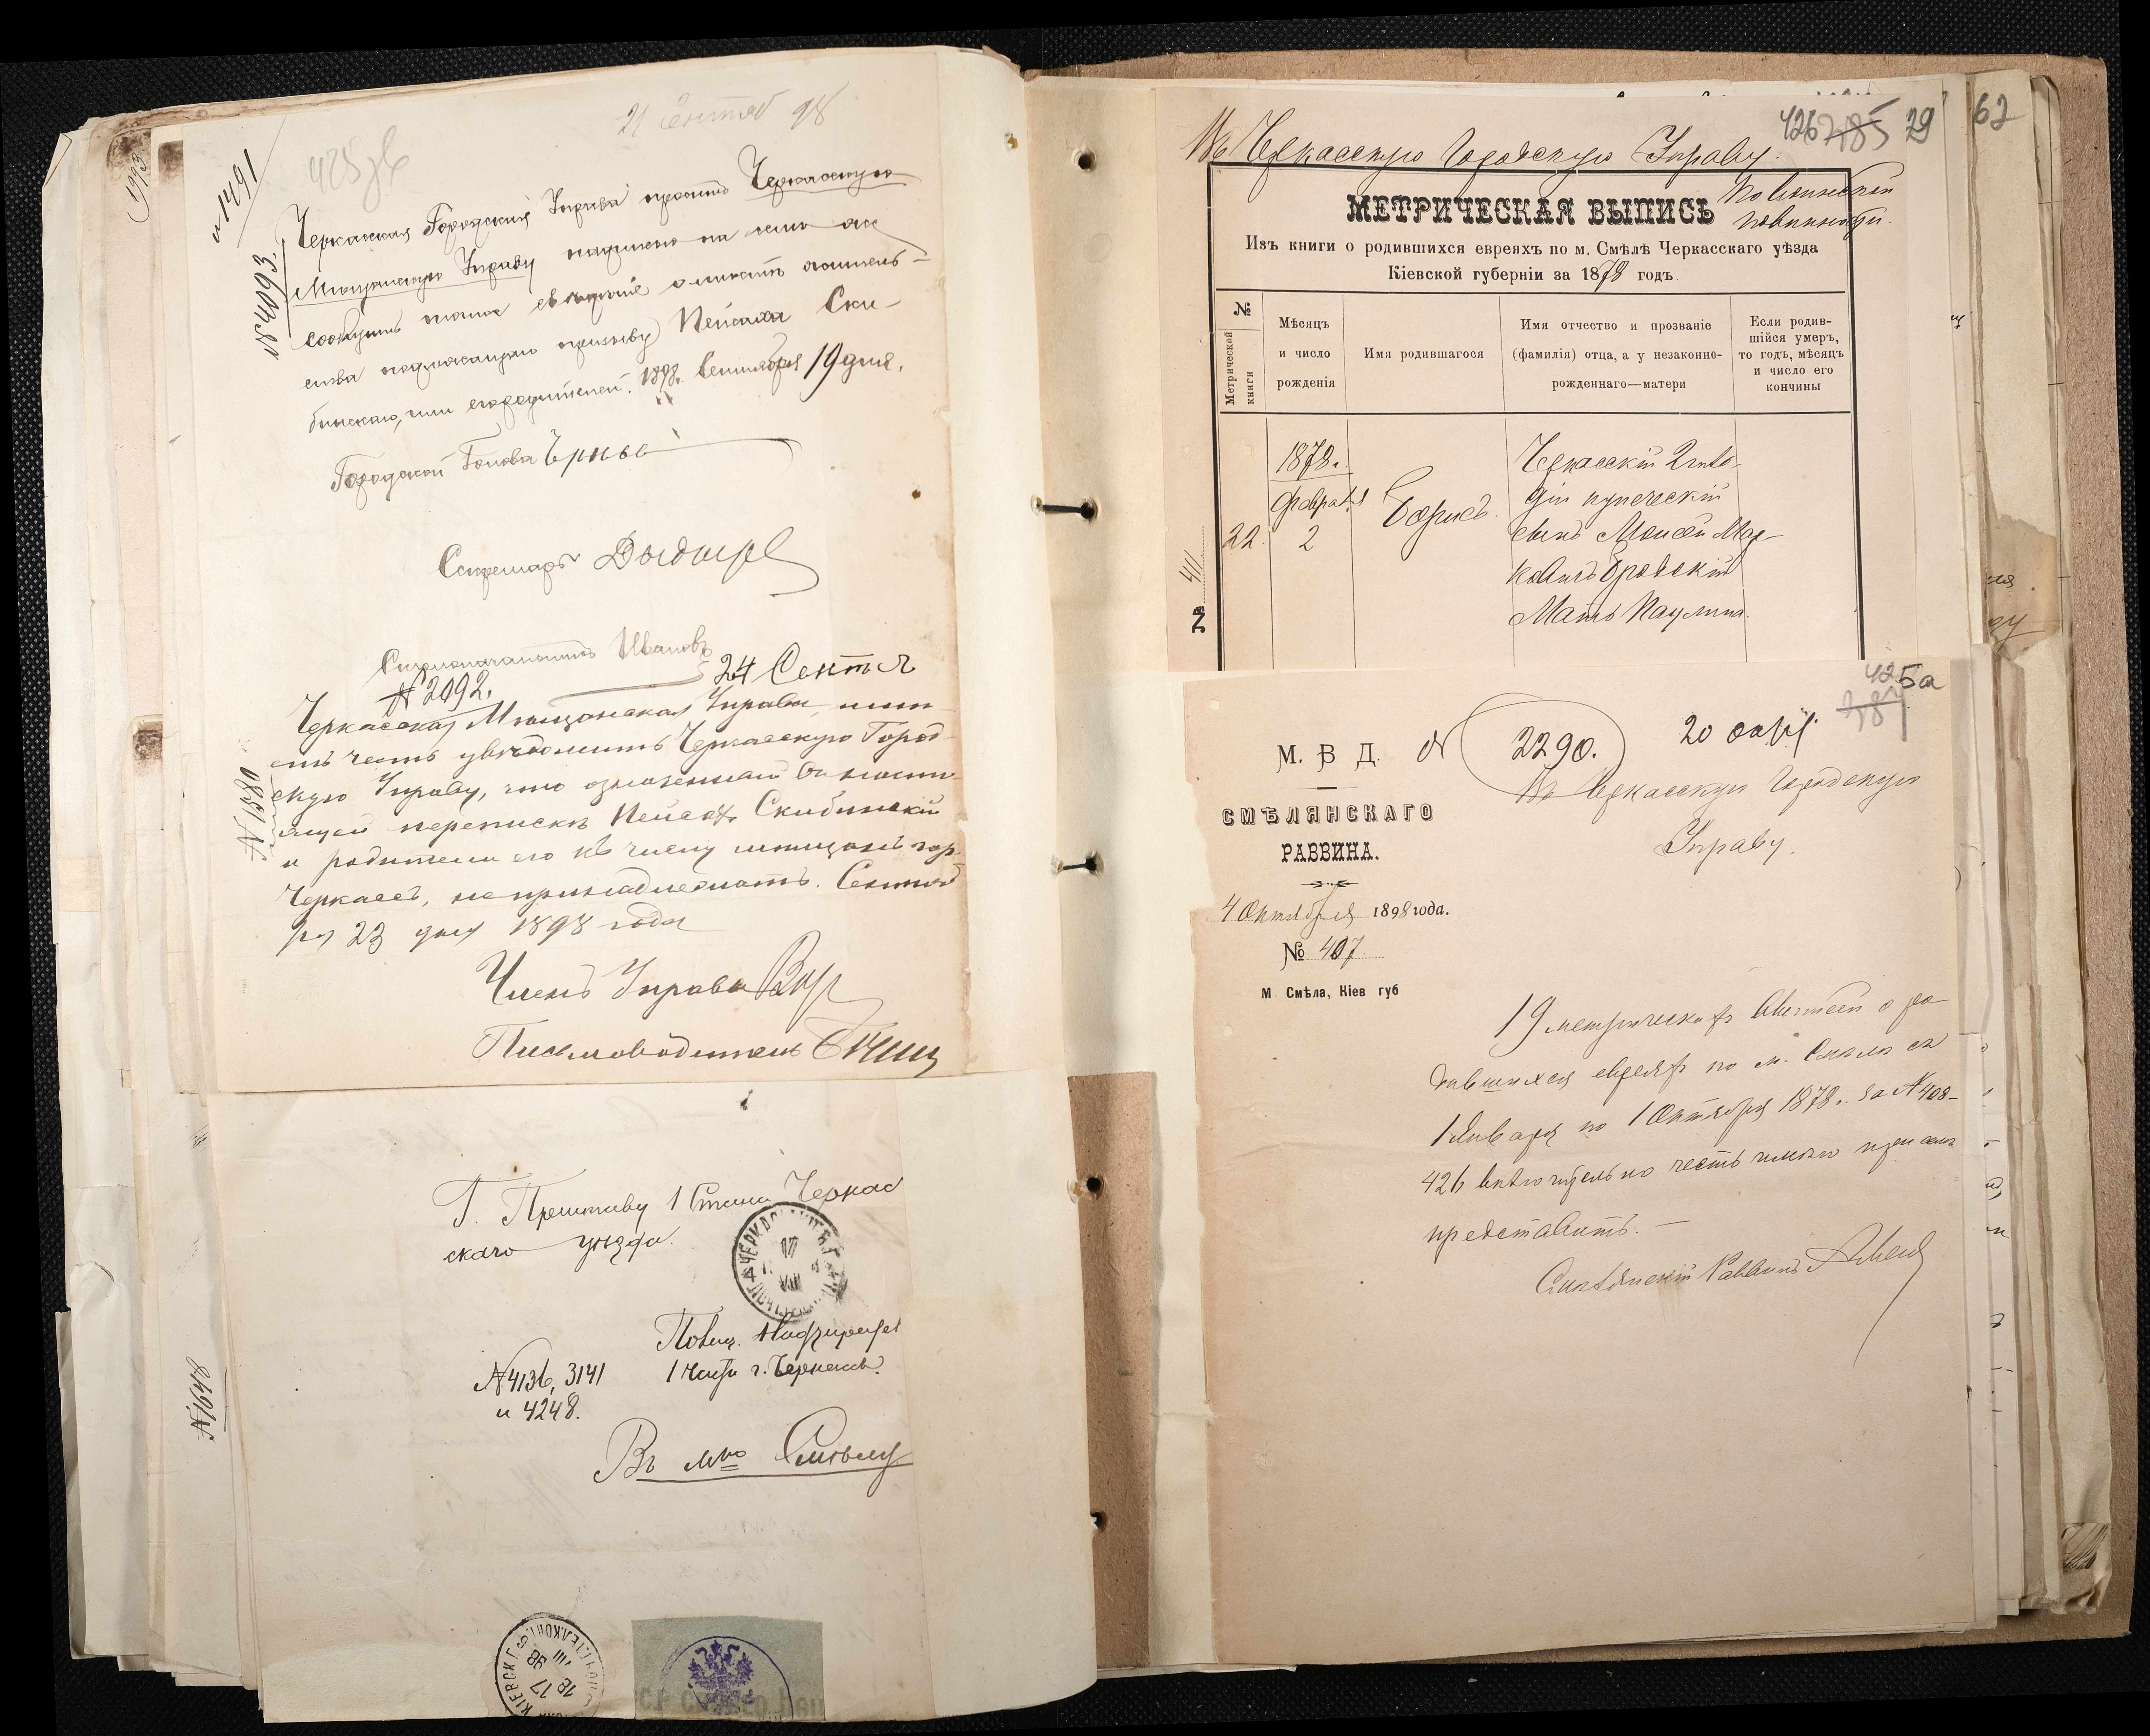 21 Сентяб 98
и 1491
№ 4093.
Черкасская Городская Управа проситъ Черкасскую
Мѣщанскую Управу надписью на семъ же
сообщить точное свѣдѣніе о мѣстѣ житель-
ства подлежащаго призыву Пейсаха Ски-
бинскаго, или его родителей. 1898 г. Сентября 19 дня.
Городской Голова
Секретарь
Столоначальникъ Ивановъ
№ 2092.
24 Сентя
Черкасская Мѣщанская Управа, имѣ-
етъ честь увѣдомить Черкасскую Город-
скую Управу, что означенный въ насто-
ящей перепискѣ Пейсахъ Скибинскій
и родители его къ числу мѣщанъ гор.
Черкасъ, не принадлежатъ. Сентяб
ря 23 дня 1898 года
Членъ Управы
Письмоводитель
№ 1580
Г. Приставу 1 Стана Черкас
скаго уѣзда.
Полиц. Надзирателя
1 части г. Черкасъ.
№ 4136, 3141
и 4248.
Въ м-ко Смѣлу
№ 1648
1993
КІЕВСК. Г.
17
98
426 785 29
62
Въ Черкасскую Городскую Управу.
По воинской
повинности.
МЕТРИЧЕСКАЯ ВЫПИСЬ
Изъ книги о родившихся евреяхъ по м. Смѣлѣ Черкасскаго уѣзда
Кіевской губерніи за 1878 годъ.
№ Метрической книги
Мѣсяцъ и число рожденія
Имя родившагося
Имя отчество и прозваніе (фамилія) отца, а у незаконно-рожденнаго—матери
Если родив-шійся умеръ, то годъ, мѣсяцъ и число его кончины
22.
1878 г.
Февраля
2
Борисъ.
Черкасскій 2 гиль-
діи купеческій
сынъ Моисей Мар-
ковичъ Бродскій
Мать Паулина.
№ 411
425а
М. В. Д.
№ 2290.
20 окт
СМѢЛЯНСКАГО
РАВВИНА.
4 Октября 1898 года.
№ 407
М Смѣла, Кіев губ
Въ Черкасскую Городскую
Управу.
19 метрическихъ выписей о ро-
дившихся евреяхъ по м. Смѣлѣ съ
1 Января по 1 Октября 1878 г. за № 408-
426 включительно честь имѣю при семъ
представить.
Смѣлянскій Раввинъ